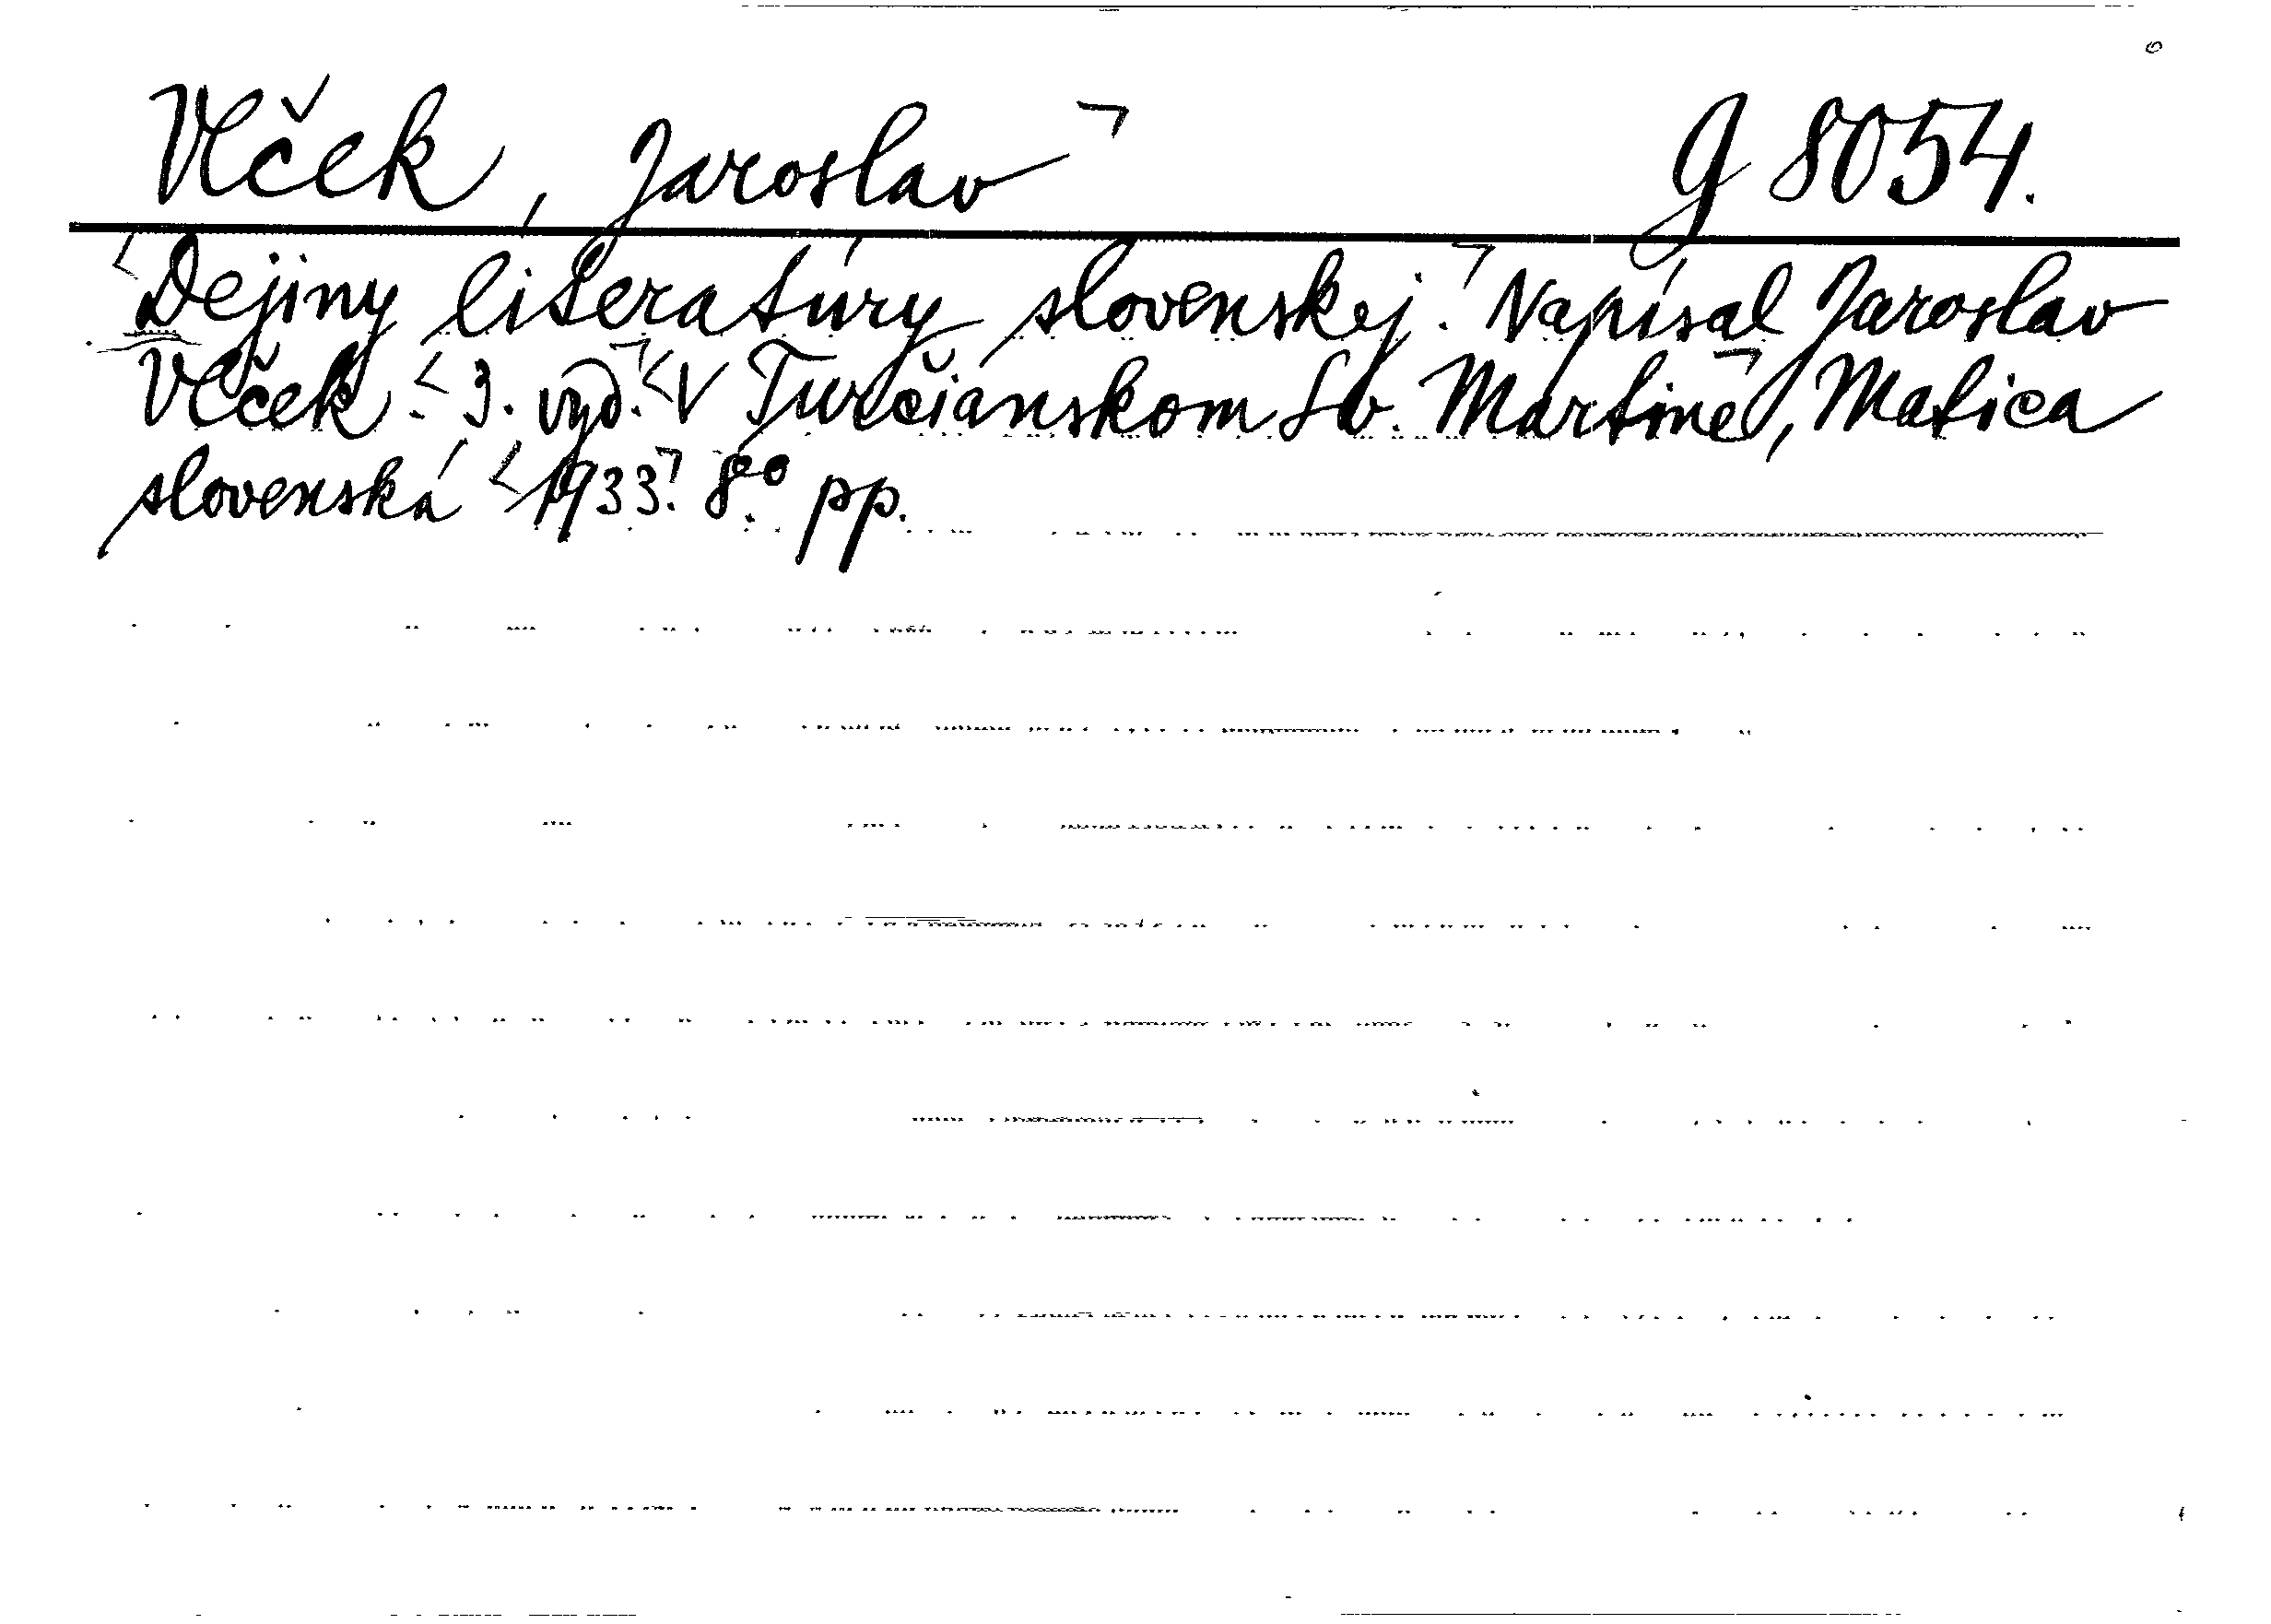 Vlček, Jaroslav ¬ G 8054.
<Dejiny literatúry slovenskej.¬ Napísal Jaroslav
Vlček.<3. vyd.¬<V Turčianskom Sv. Martine¬, Matica
slovenská <1933.¬ 8° pp.